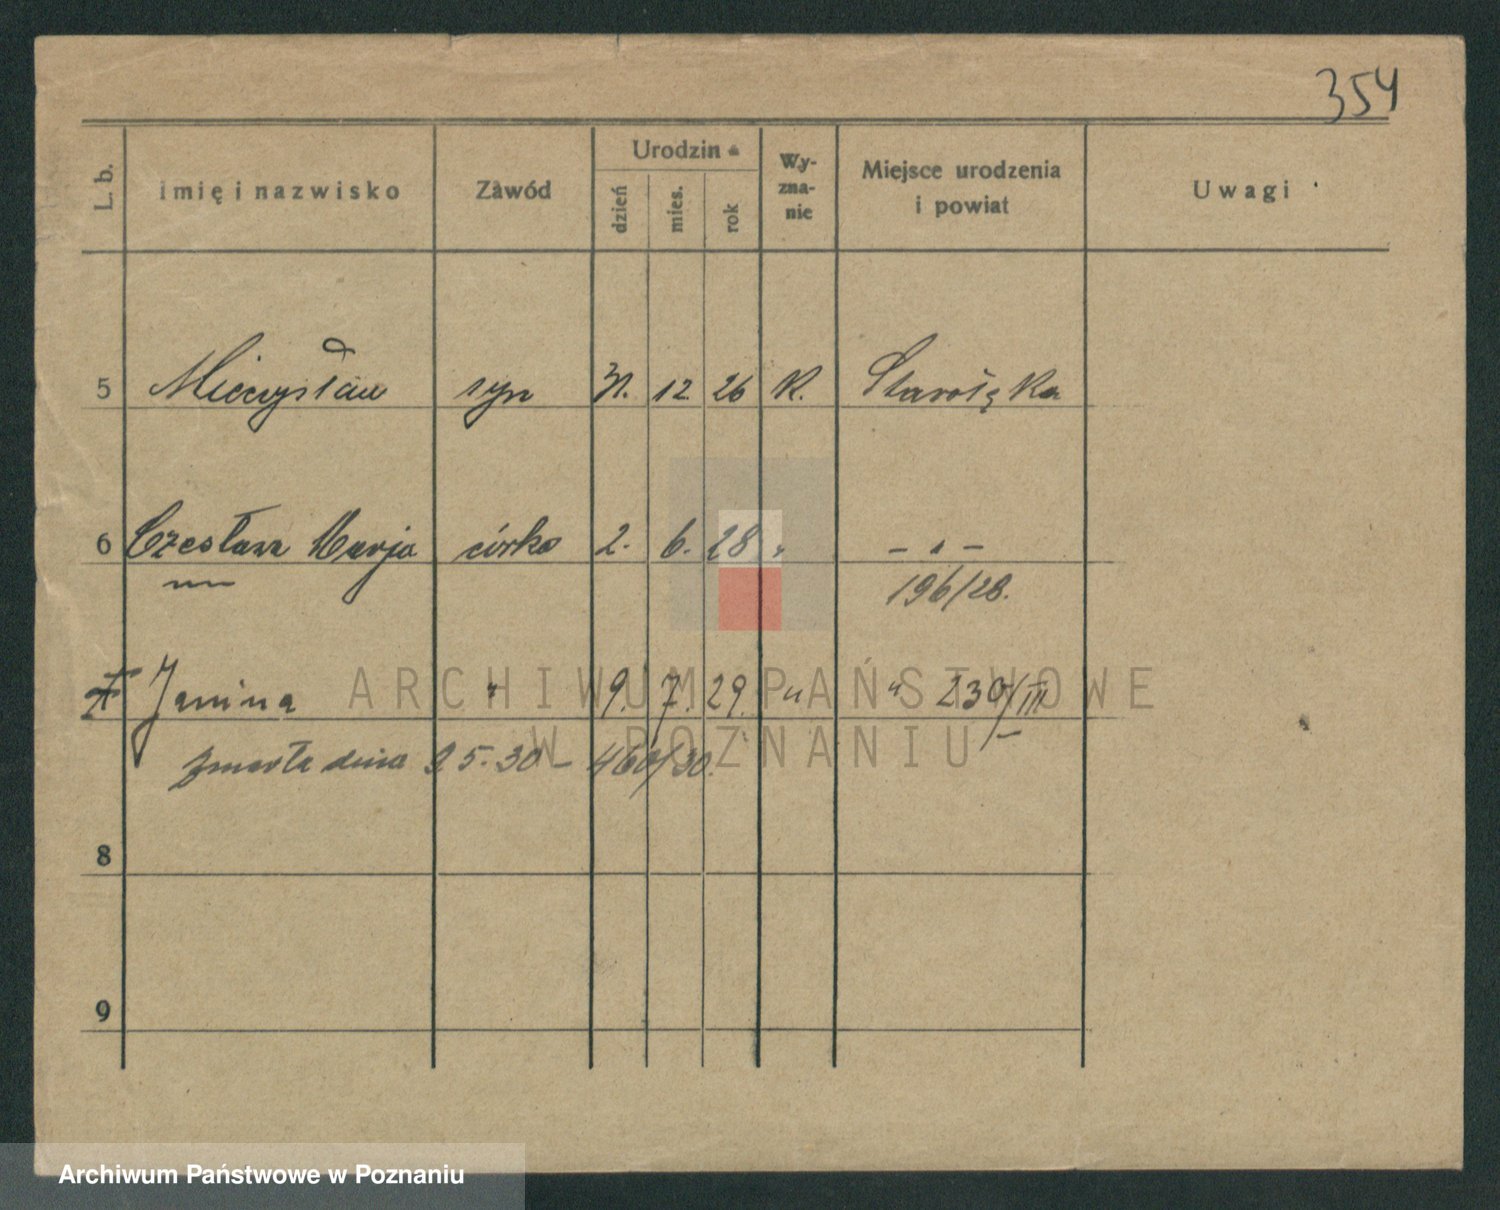 354
L. b. Imię i nazwisko Zawód Urodzin Wy-zna-nie Miejsce urodzenia i powiat Uwagi
dzień mies. rok
5 Mieczysław syn 31. 12 26 K. Starołęka
6 Czesława Marja córka 2. 6. 28 " – " –
196/28.
7 Janina " 9. 7. 29. " " 230/III
zmarła dnia 2 5. 30 – 460/30.
8
9
ARCHIWUM PAŃSTWOWE
W POZNANIU
Archiwum Państwowe w Poznaniu